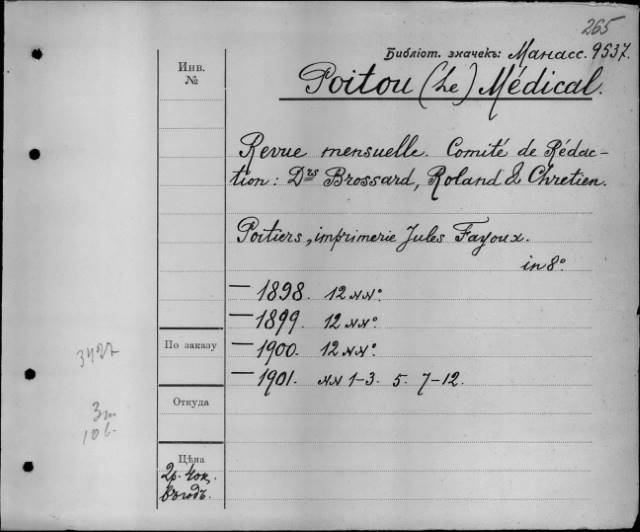 265
Библіот. значекъ: Манасс. 9537.
Инв.
№
Poitou (Le) Médical.
Revue mensuelle. Comité de Rédac-
tion: Drs Brossard, Roland & Chretien.
Poitiers, imprimerie Jules Fayoux.
in 8°
— 1898. 12 NN°.
— 1899. 12 NN°.
— 1900. 12 NN°.
— 1901. NN 1-3. 5. 7-12.
По заказу
3427
Откуда
Цѣна
2р. 40к.
въ годъ.